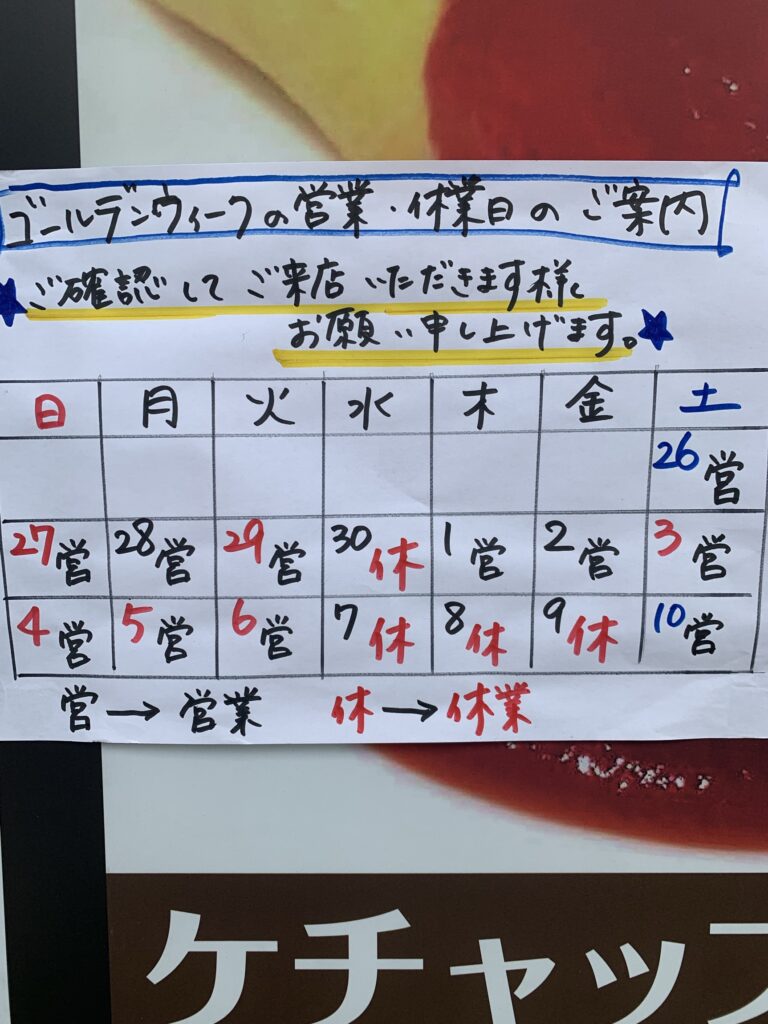 ゴールデンウィークの営業・休業日のご案内
★ご確認してご来店いただきます様に
お願い申し上げます。★
日 月 火 水 木 金 土
26営
27営 28営 29営 30休 1営 2営 3営
4営 5営 6営 7休 8休 9休 10営
営→営業 休→休業
ケチャップ